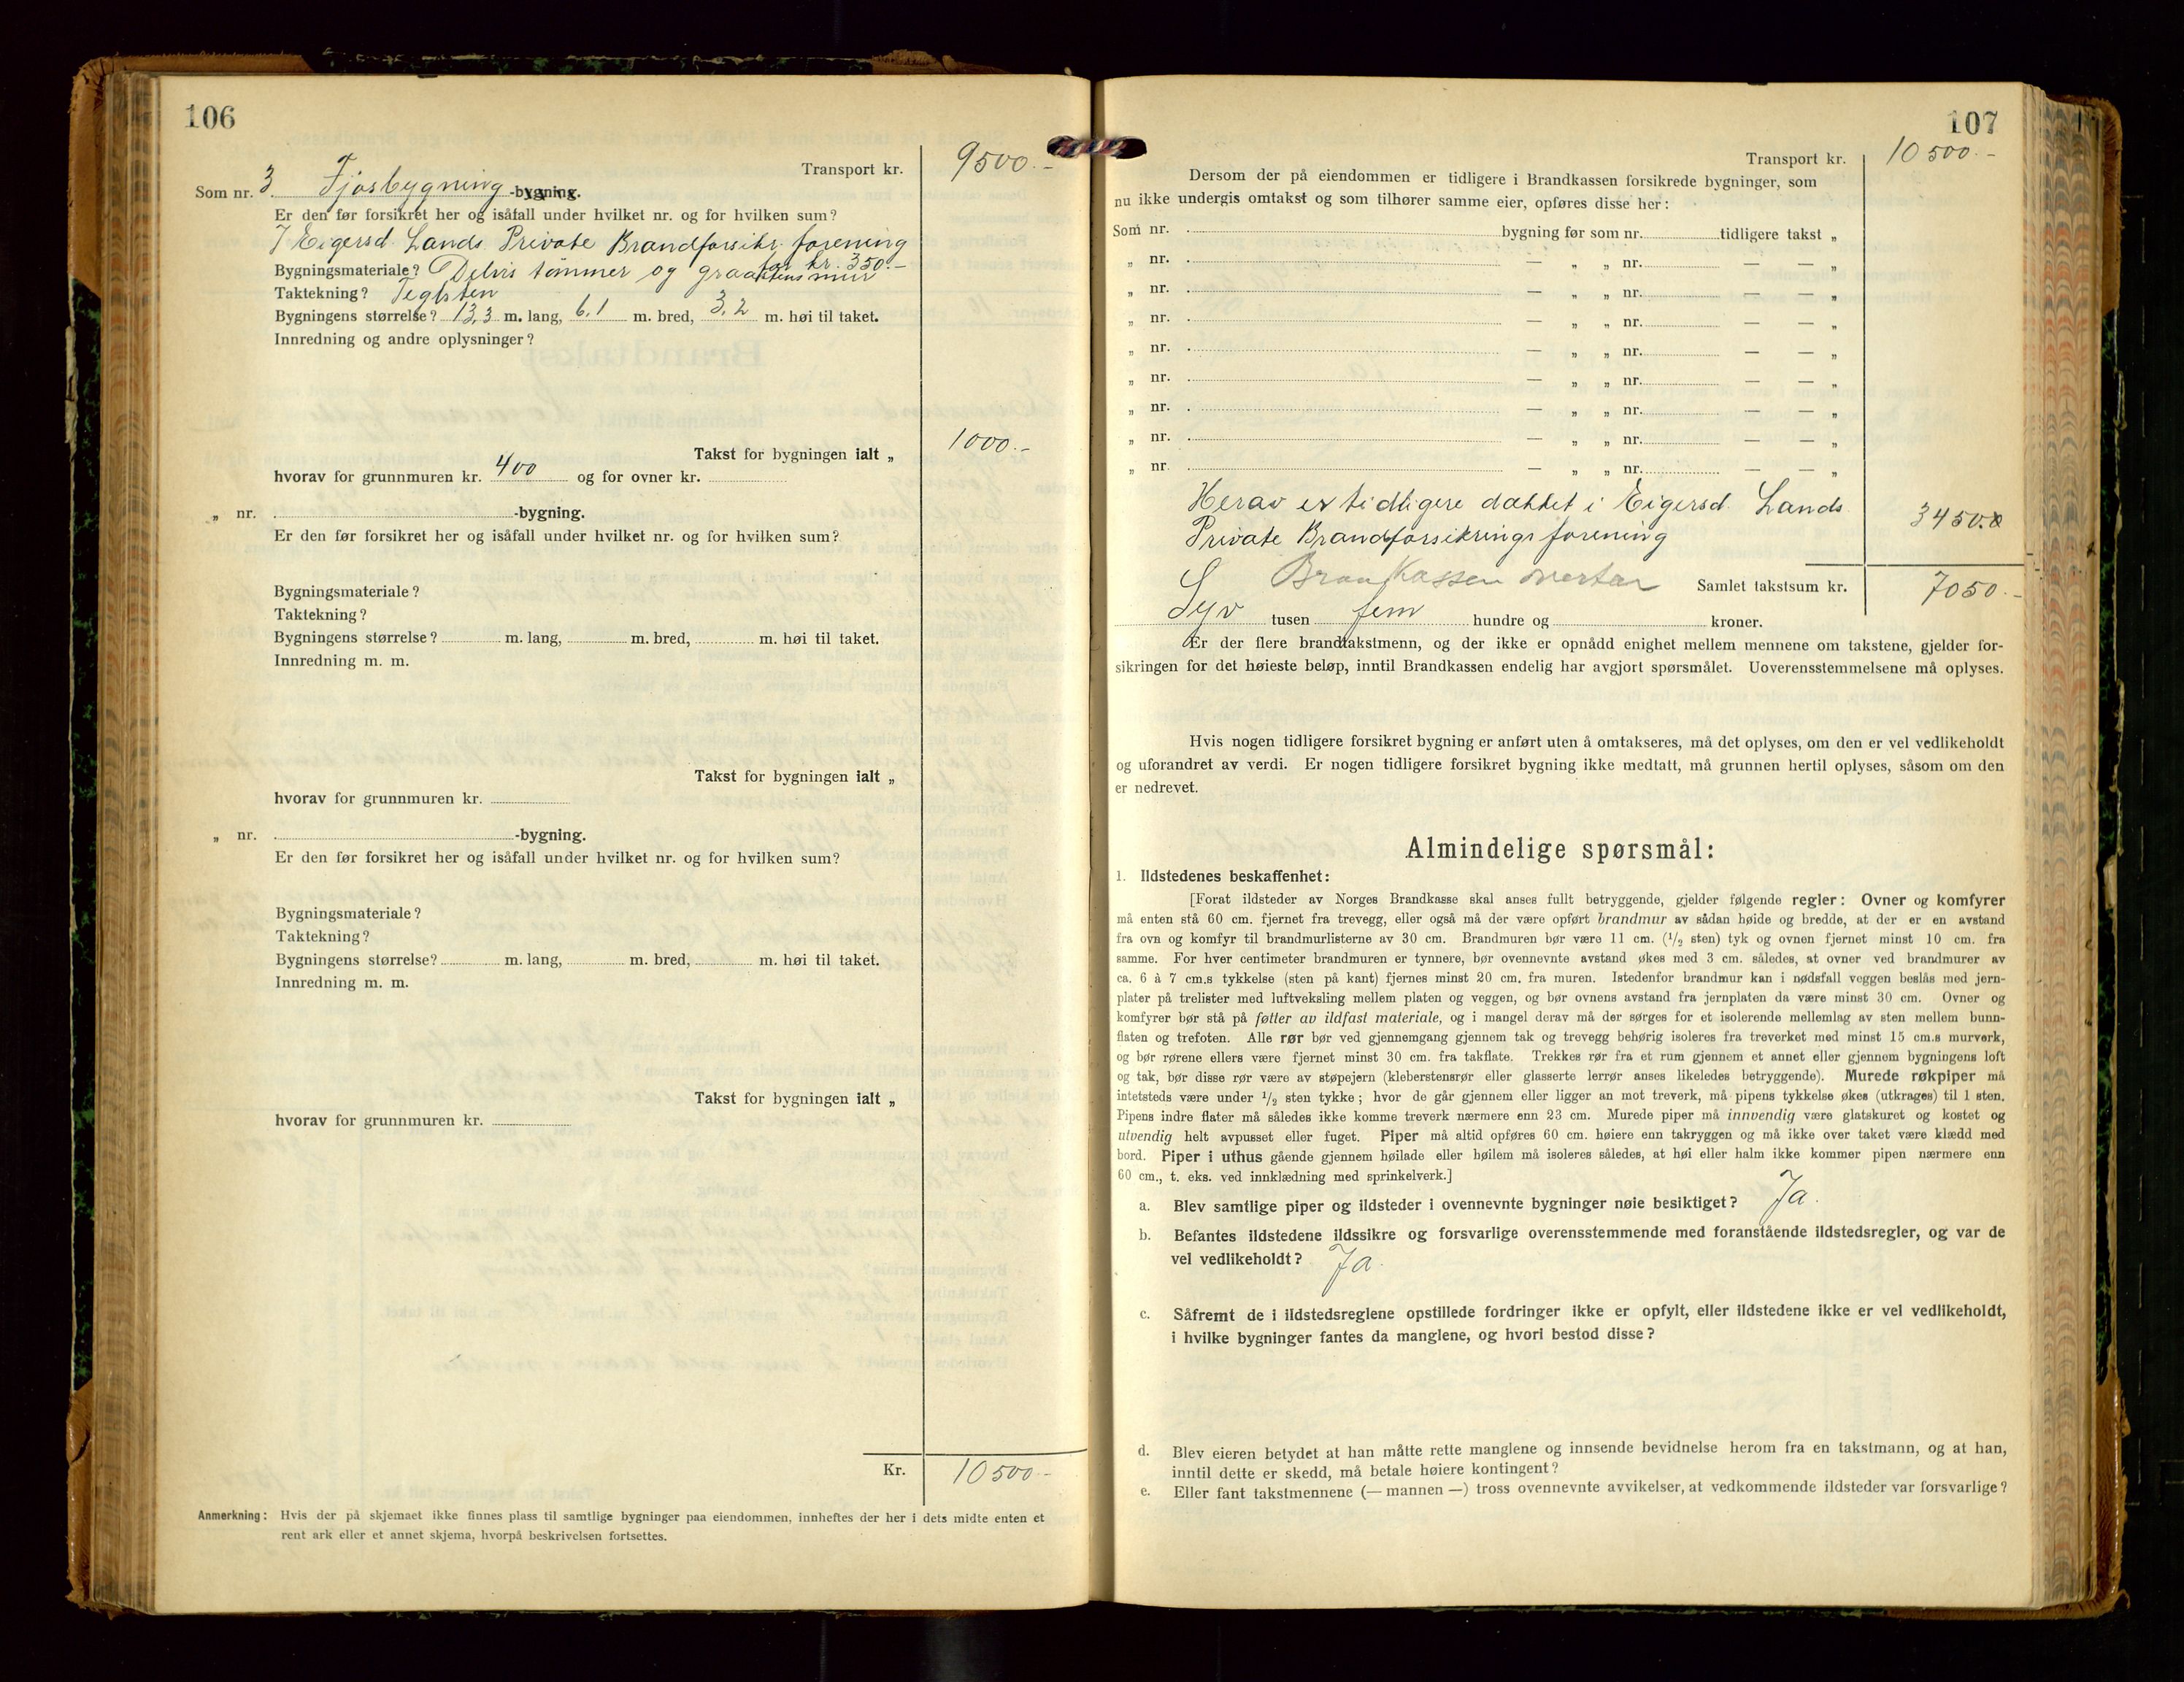 106
Transport kr. 9500.-
Som nr. 3 Fjøsbygning -bygning.
Er den før forsikret her og isåfall under hvilket nr. og for hvilken sum?
I Eigersd. Lands Private Brandforsikr. forening
for kr. 350.-
Bygningsmateriale? Delvis tømmer og graastensmur
Taktekning? Teglsten
Bygningens størrelse? 13,3 m. lang, 6,1 m. bred, 3,2 m. høi til taket.
Innredning og andre oplysninger?
Takst for bygningen ialt „ 1000.-
hvorav for grunnmuren kr. 400 og for ovner kr.
„ nr. -bygning.
Er den før forsikret her og isåfall under hvilket nr. og for hvilken sum?
Bygningsmateriale?
Taktekning?
Bygningens størrelse? m. lang, m. bred, m. høi til taket.
Innredning m. m.
Takst for bygningen ialt „
hvorav for grunnmuren kr.
„ nr. -bygning.
Er den før forsikret her og isåfall under hvilket nr. og for hvilken sum?
Bygningsmateriale?
Taktekning?
Bygningens størrelse? m. lang, m. bred, m. høi til taket.
Innredning m. m.
Takst for bygningen ialt „
hvorav for grunnmuren kr.
Kr. 10500.-
Anmerkning: Hvis der på skjemaet ikke finnes plass til samtlige bygninger paa eiendommen, innheftes der her i dets midte enten et
rent ark eller et annet skjema, hvorpå beskrivelsen fortsettes.
107
Transport kr. 10500.-
Dersom der på eiendommen er tidligere i Brandkassen forsikrede bygninger, som
nu ikke undergis omtakst og som tilhører samme eier, opføres disse her:
Som nr. bygning før som nr. tidligere takst „
„ nr. — „ „ nr. — — „
„ nr. — „ „ nr. — — „
„ nr. — „ „ nr. — — „
„ nr. — „ „ nr. — — „
„ nr. — „ „ nr. — — „
„ nr. — „ „ nr. — — „
„ nr. — „ „ nr. — — „
„ nr. — „ „ nr. — — „
Herav er tidligere dækket i Eigersd. Lands
Private Brandforsikrings forening 3450.
Brankassen overtar Samlet takstsum kr. 7050.-
Syv tusen fem hundre og kroner.
Er der flere brandtakstmenn, og der ikke er opnådd enighet mellem mennene om takstene, gjelder for-
sikringen for det høieste beløp, inntil Brandkassen endelig har avgjort spørsmålet. Uoverensstemmelsene må oplyses.
Hvis nogen tidligere forsikret bygning er anført uten å omtakseres, må det oplyses, om den er vel vedlikeholdt
og uforandret av verdi. Er nogen tidligere forsikret bygning ikke medtatt, må grunnen hertil oplyses, såsom om den
er nedrevet.
Almindelige spørsmål:
1. Ildstedenes beskaffenhet:
[Forat ildsteder av Norges Brandkasse skal anses fullt betryggende, gjelder følgende regler: Ovner og komfyrer
må enten stå 60 cm. fjernet fra trevegg, eller også må der være opført brandmur av sådan høide og bredde, at der er en avstand
fra ovn og komfyr til brandmurlisterne av 30 cm. Brandmuren bør være 11 cm. (1/2 sten) tyk og ovnen fjernet minst 10 cm. fra
samme. For hver centimeter brandmuren er tynnere, bør ovennevnte avstand økes med 3 cm. således, at ovner ved brandmurer av
ca. 6 à 7 cm.s tykkelse (sten på kant) fjernes minst 20 cm. fra muren. Istedenfor brandmur kan i nødsfall veggen beslås med jern-
plater på trelister med luftveksling mellem platen og veggen, og bør ovnens avstand fra jernplaten da være minst 30 cm. Ovner og
komfyrer bør stå på føtter av ildfast materiale, og i mangel derav må der sørges for et isolerende mellemlag av sten mellem bunn-
flaten og trefoten. Alle rør bør ved gjennemgang gjennem tak og trevegg behørig isoleres fra treverket med minst 15 cm.s murverk,
og bør rørene ellers være fjernet minst 30 cm. fra takflate. Trekkes rør fra et rum gjennem et annet eller gjennem bygningens loft
og tak, bør disse rør være av støpejern (kleberstensrør eller glasserte lerrør anses likeledes betryggende). Murede røkpiper må
intetsteds være under 1/2 sten tykke; hvor de går gjennem eller ligger an mot treverk, må pipens tykkelse økes (utkrages) til 1 sten.
Pipens indre flater må således ikke komme treverk nærmere enn 23 cm. Murede piper må innvendig være glatskuret og kostet og
utvendig helt avpusset eller fuget. Piper må altid opføres 60 cm. høiere enn takryggen og må ikke over taket være klædd med
bord. Piper i uthus gående gjennem høilade eller høilem må isoleres således, at høi eller halm ikke kommer pipen nærmere enn
60 cm., t. eks. ved innklædning med sprinkelverk.]
a. Blev samtlige piper og ildsteder i ovennevnte bygninger nøie besiktiget? Ja.
b. Befantes ildstedene ildssikre og forsvarlige overensstemmende med foranstående ildstedsregler, og var de
vel vedlikeholdt? Ja.
c. Såfremt de i ildstedsreglene opstillede fordringer ikke er opfylt, eller ildstedene ikke er vel vedlikeholdt,
i hvilke bygninger fantes da manglene, og hvori bestod disse?
d. Blev eieren betydet at han måtte rette manglene og innsende bevidnelse herom fra en takstmann, og at han,
inntil dette er skedd, må betale høiere kontingent?
e. Eller fant takstmennene (— mannen —) tross ovennevnte avvikelser, at vedkommende ildsteder var forsvarlige?